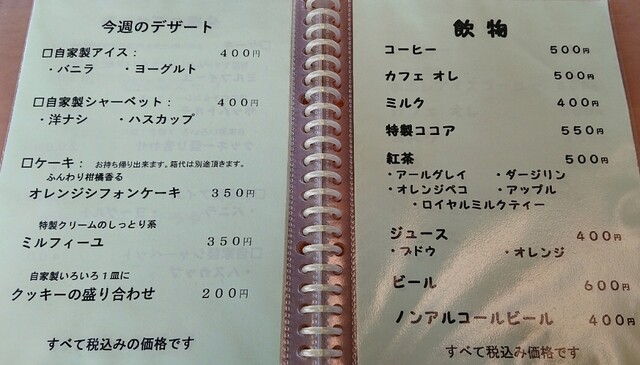 今週のデザート
□自家製アイス： 400円
・バニラ ・ヨーグルト
□自家製シャーベット： 400円
・洋ナシ ・ハスカップ
□ケーキ： お持ち帰り出来ます。箱代は別途頂きます。
ふんわり柑橘香る
オレンジシフォンケーキ 350円
特製クリームのしっとり系
ミルフィーユ 350円
自家製いろいろ1皿に
クッキーの盛り合わせ 200円
すべて税込みの価格です
飲物
コーヒー 500円
カフェ オレ 500円
ミルク 400円
特製ココア 550円
紅茶 500円
・アールグレイ ・ダージリン
・オレンジペコ ・アップル
・ロイヤルミルクティー
ジュース 400円
・ブドウ ・オレンジ
ビール 600円
ノンアルコールビール 400円
すべて税込みの価格です